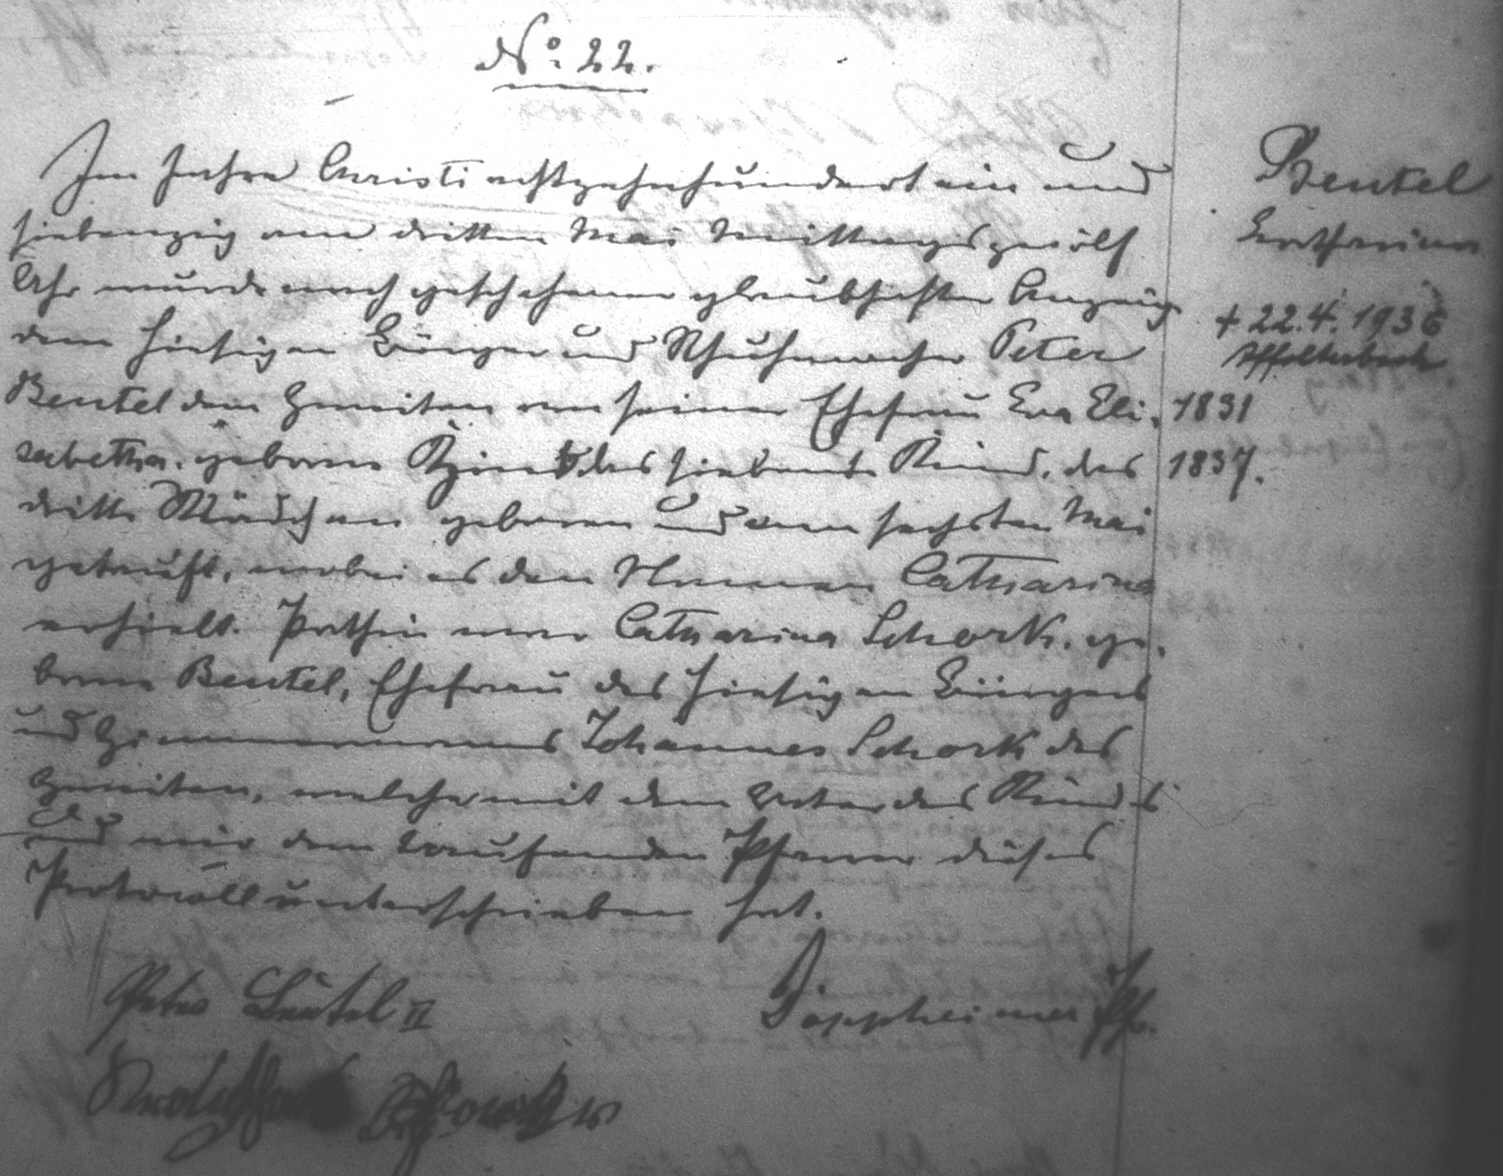 No. 22.
Im Jahre Christi achtzehnhundert ein und
siebenzig am dritten Mai Mittags zwölf
Uhr wurde nach geschehener glaubhafter Anzeige
dem hiesigen Bürger und Schuhmacher Peter
Beutel dem Zweiten von seiner Ehefrau Eva Eli-
sabetha. geborene das siebente Kind, das
dritte Mädchen geboren und am sechsten Mai
getauft, wobei es den Namen Catharina
erhielt. Pathin war Catharina Schork. ge-
borne Beutel, Ehefrau des hiesigen Bürgers
und Zimmermanns Johannes Schork des
Zweiten, welche mit dem Vater des Kindes
und mir dem taufenden Pfarrer dieses
Protocoll unterschrieben hat.
Peter Beutel II
Pfr.
Schork
Beutel
Catharina
+ 22.4. 1936
Affolterbach
1831
1837.